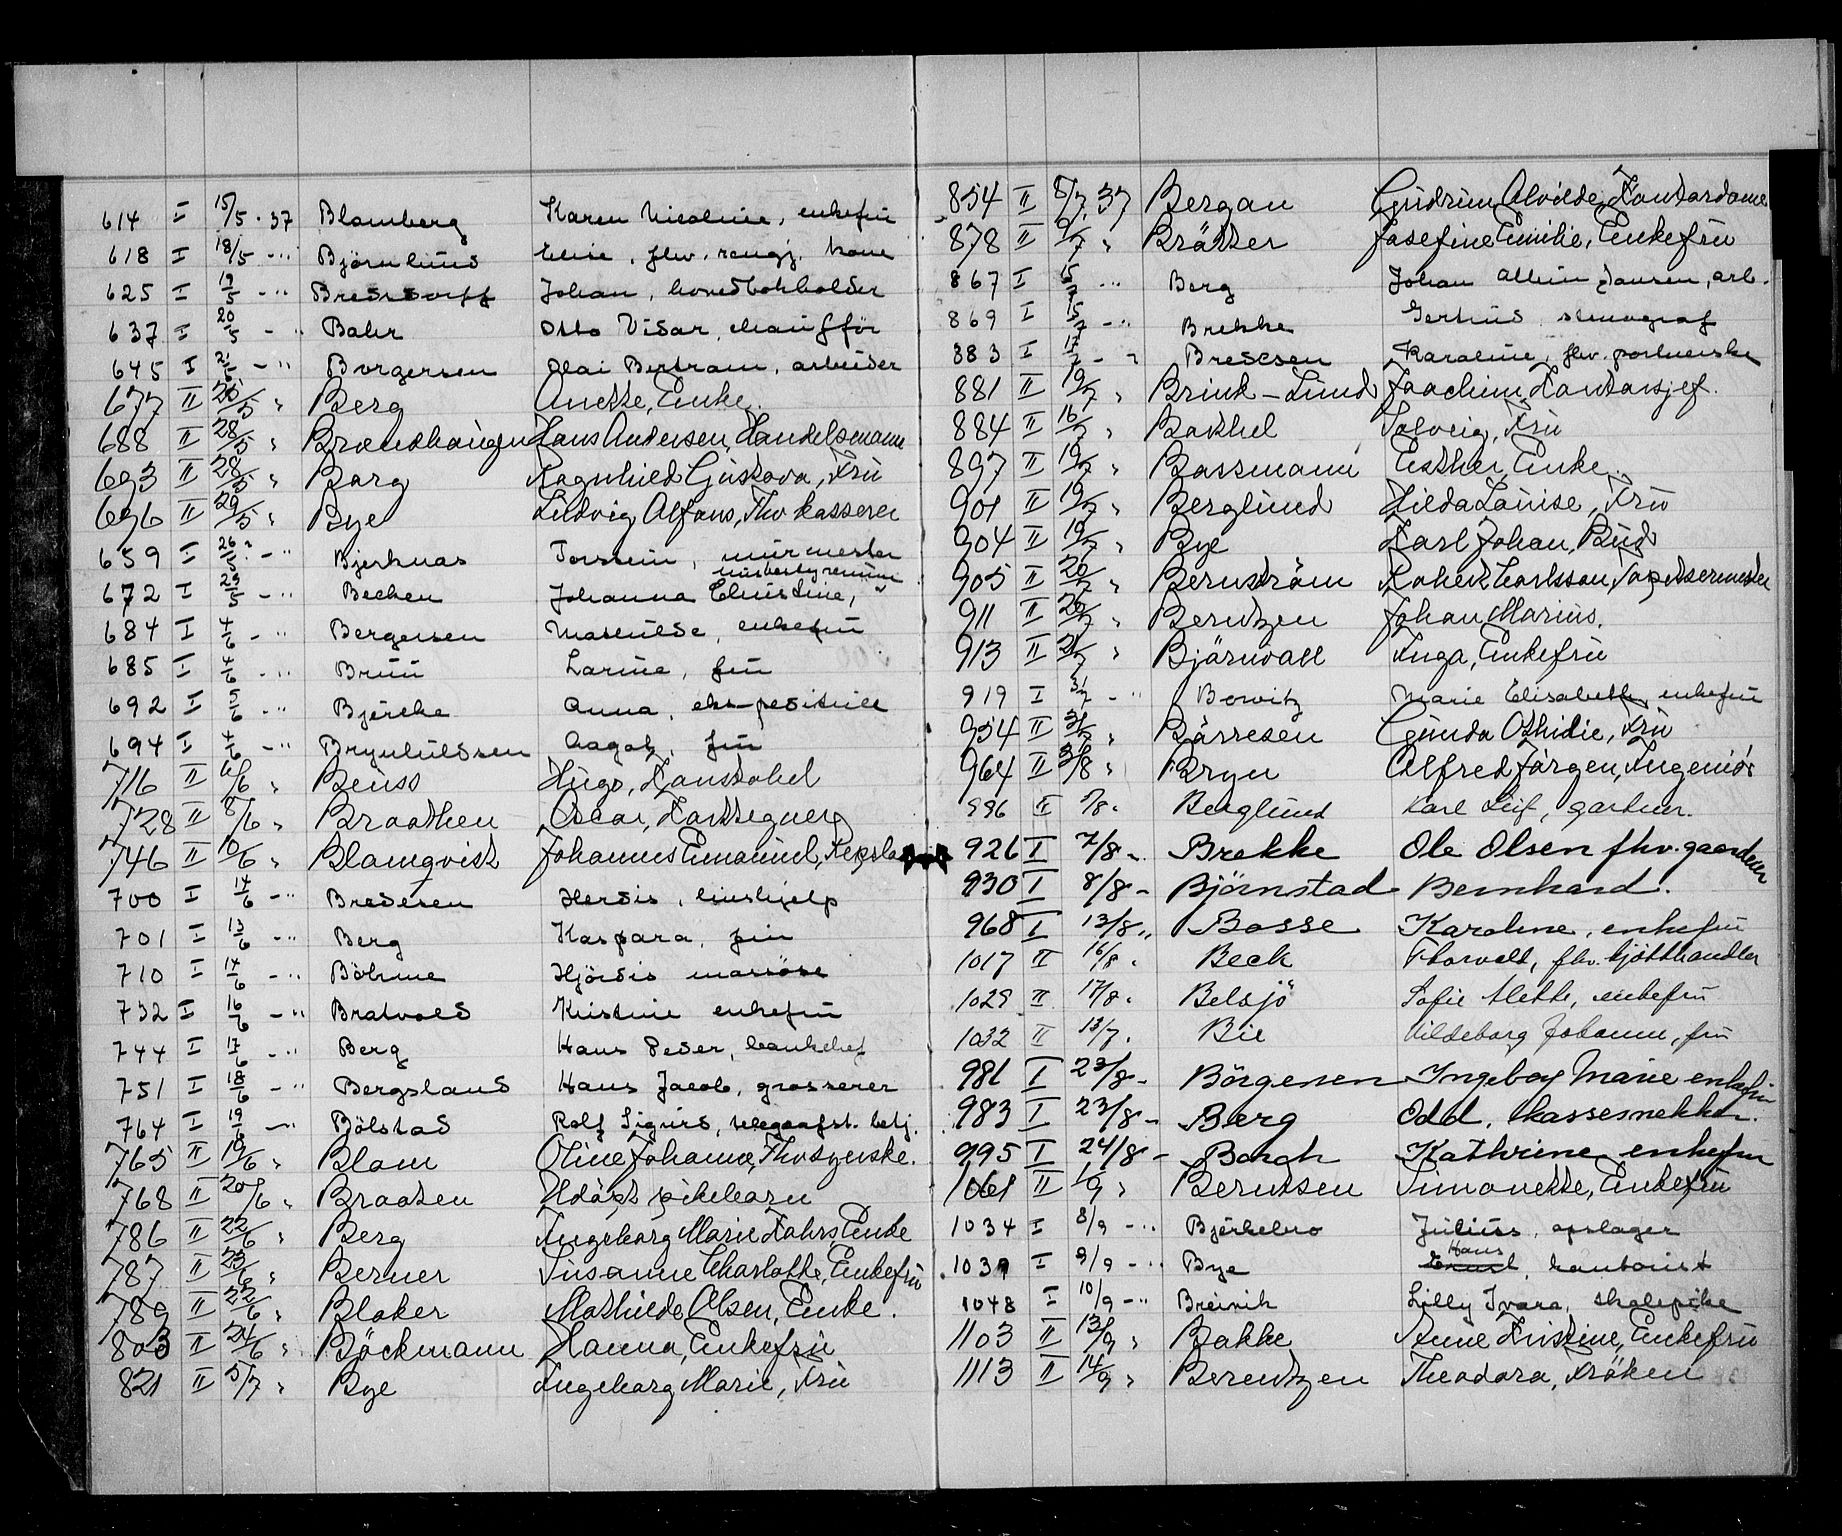 614 I 15/5 - 37 Blomberg Karen Nicoline, enkefru
618 I 18/5 - " Björnlund Elise, fhv. rengj. kone
625 I 19/5 - " Bredsdorff Johan, hovedbokholder
637 I 20/5 - " Bahr Otto Vidar, chaufför
645 I 21/5 - " Borgersen Olai Bertram, arbeider
677 II 25/5 " Berg Anette, Enke.
688 II 28/5 " Brændhaugen Hans Andersen, Handelsmann
693 II 28/5 " Borg Ragnhild Gustava, Fru
696 II 29/5 " Bye Ludvig Alfons, Fhv kasserer
659 I 26/5 - " Bjerknas Torstein, murmester
672 I 29/5 - " Becken Johanna Christine, husbestyrerinne
684 I 4/6 - " Bergersen Mathilde, enkefru
685 I 4/6 - " Bruu Larine, fru
692 I 5/6 - " Bjercke Anna, ekspeditrise
694 I 4/6 - " Brynhildssen Aagot, fru
716 II 4/6 " Beuss Hugo, Konstabel
728 II 8/6 " Braathen Oscar, Karttegner
746 II 10/6 " Blomqvist Johannes Emanuel,
700 I 14/6 - " Bredesen Herdis, hushjelp
701 I 13/6 - " Berg Kaspara, fru
710 I 14/6 - " Böhme Hjördis massöse
732 I 16/6 - " Bratvold Kristine enkefru
744 I 17/6 - " Berg Hans Peder, bankchef
751 I 18/6 - " Bergsland Hans Jacob, grosserer
764 I 19/6 - " Bölstad Rolf Sigurd, telegrafst. betj.
765 II 19/6 " Blom Oline Johanne, Fhv syerske.
768 II 20/6 " Braaten Udöpt pikebarn
786 II 22/6 " Berg Ingeborg Marie Enke
787 II 23/6 " Berner Susanne Charlotte, Enkefru
789 II 22/6 " Blaker Mathilde Olsen, Enke.
803 II 24/6 " Böckmann Hanna, Enkefru
821 II 5/7 " Bye Ingeborg Marie, Fru
854 II 8/7 37 Bergan Gudrun Alvilde, Kontordame
878 II 9/7 " Bråtter Josefine Emilie, Enkefru
867 I 15/7 - " Berg Johan Albin Jansen, arb.
869 I 15/7 - " Brekke Gertrud stenograf
883 I 17/7 - " Bredesen Karoline, fhv. portnerske
881 II 19/7 " Brink-Lund Joachim, Kontorsjef.
884 II 16/7 " Bakkel Solveig, Fru
897 II 19/7 " Bassmann Esther, Enke.
901 II 19/7 " Berglund Hilda Louise, Fru
904 II 19/7 " Bye Karl Johan, Bud
905 II 20/7 " Bernström Robert Carlsson, Tapetsermester
911 II 20/7 " Berntzen Johan Marius.
913 II 21/7 " Björnvall Inga, Enkefru
919 I 31/7 - " Bowitz Marie Elisabeth, enkefru
954 II 31/7 " Börresen Gunda Othidie, Fru
964 II 3/8 " Bryn Alfred Jörgen, Ingeniör
996 II 7/8. Berglund Karl Leif, gartner.
926 I 7/8 - Brekke Ole Olsen fhv. gaardeier
930 I 8/8 - Björnstad Bernhard.
968 I 13/8 " Bosse Karoline, enkefru
1017 II 16/8. Beck Thorvald, fhv. kjötthandler
1029 II 17/8. Belsjö Sofie Alette, enkefru
1032 II 13/7. Bie Hildeborg Johanne, fru
981 I 23/8 - Börgesen Ingeborg Marie enkefru
983 I 23/8 - Berg Odd, kassesnekker.
995 I 24/8 - Borch Kathrine, enkefru
1061 II 1/9 " Berntsen Simonette, Enkefru
1034 I 8/9 - " Bjerkebro Julius, opslager
1039 I 9/9 - " Bye Hans, kontorist
1048 I 10/9 - " Breivik Lilly Ivara, skolepike
1103 II 13/9 " Bakke Anne Kristine, Enkefru
1113 II 14/9 " Berentzen Theodora, Fröken